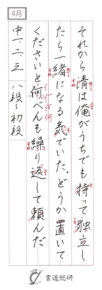 4月
それから清は俺がうちでも持って独立し
たら一緒になる気でいた。どうか置いて
くださいと何べんも繰り返して頼んだ
中一・二・三 八段~初段
書道総研